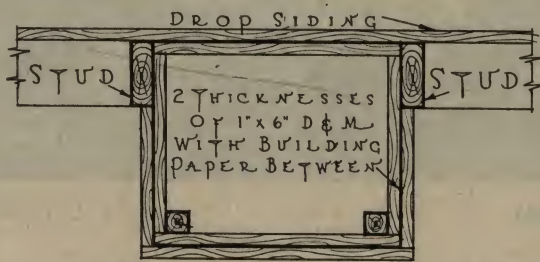 DROP SIDING
STUD
STUD
2 THICKNESSES
OF 1" x 6" D & M
WITH BUILDING
PAPER BETWEEN